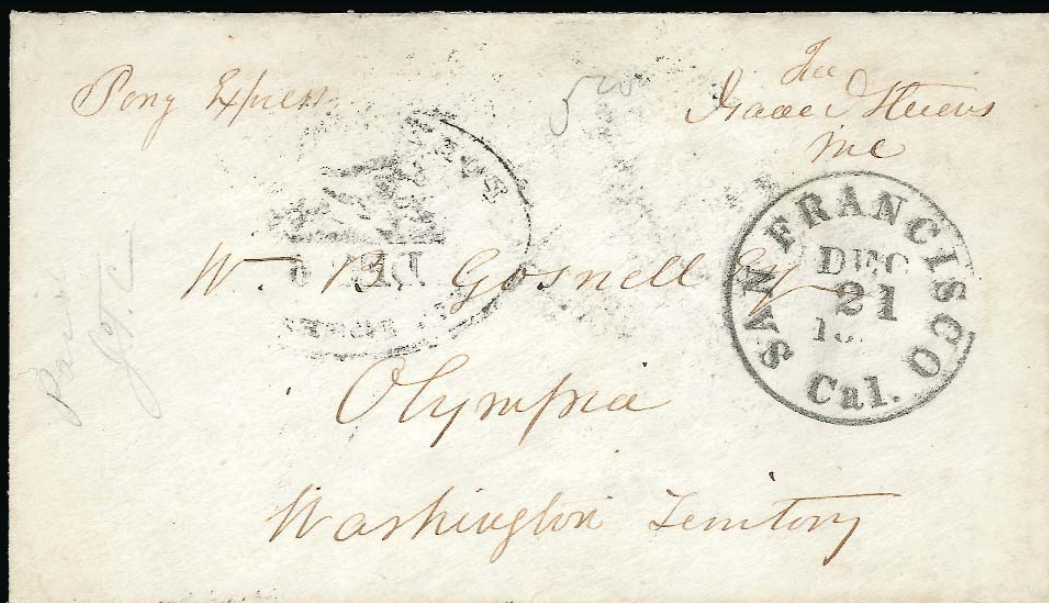 Pony Express
Free
Isaac I Stevens
MC
5 00
SAN FRANCISCO
DEC
21
Cal.
Wm B. Gosnell Esq
Olympia
Washington Territory
Paid